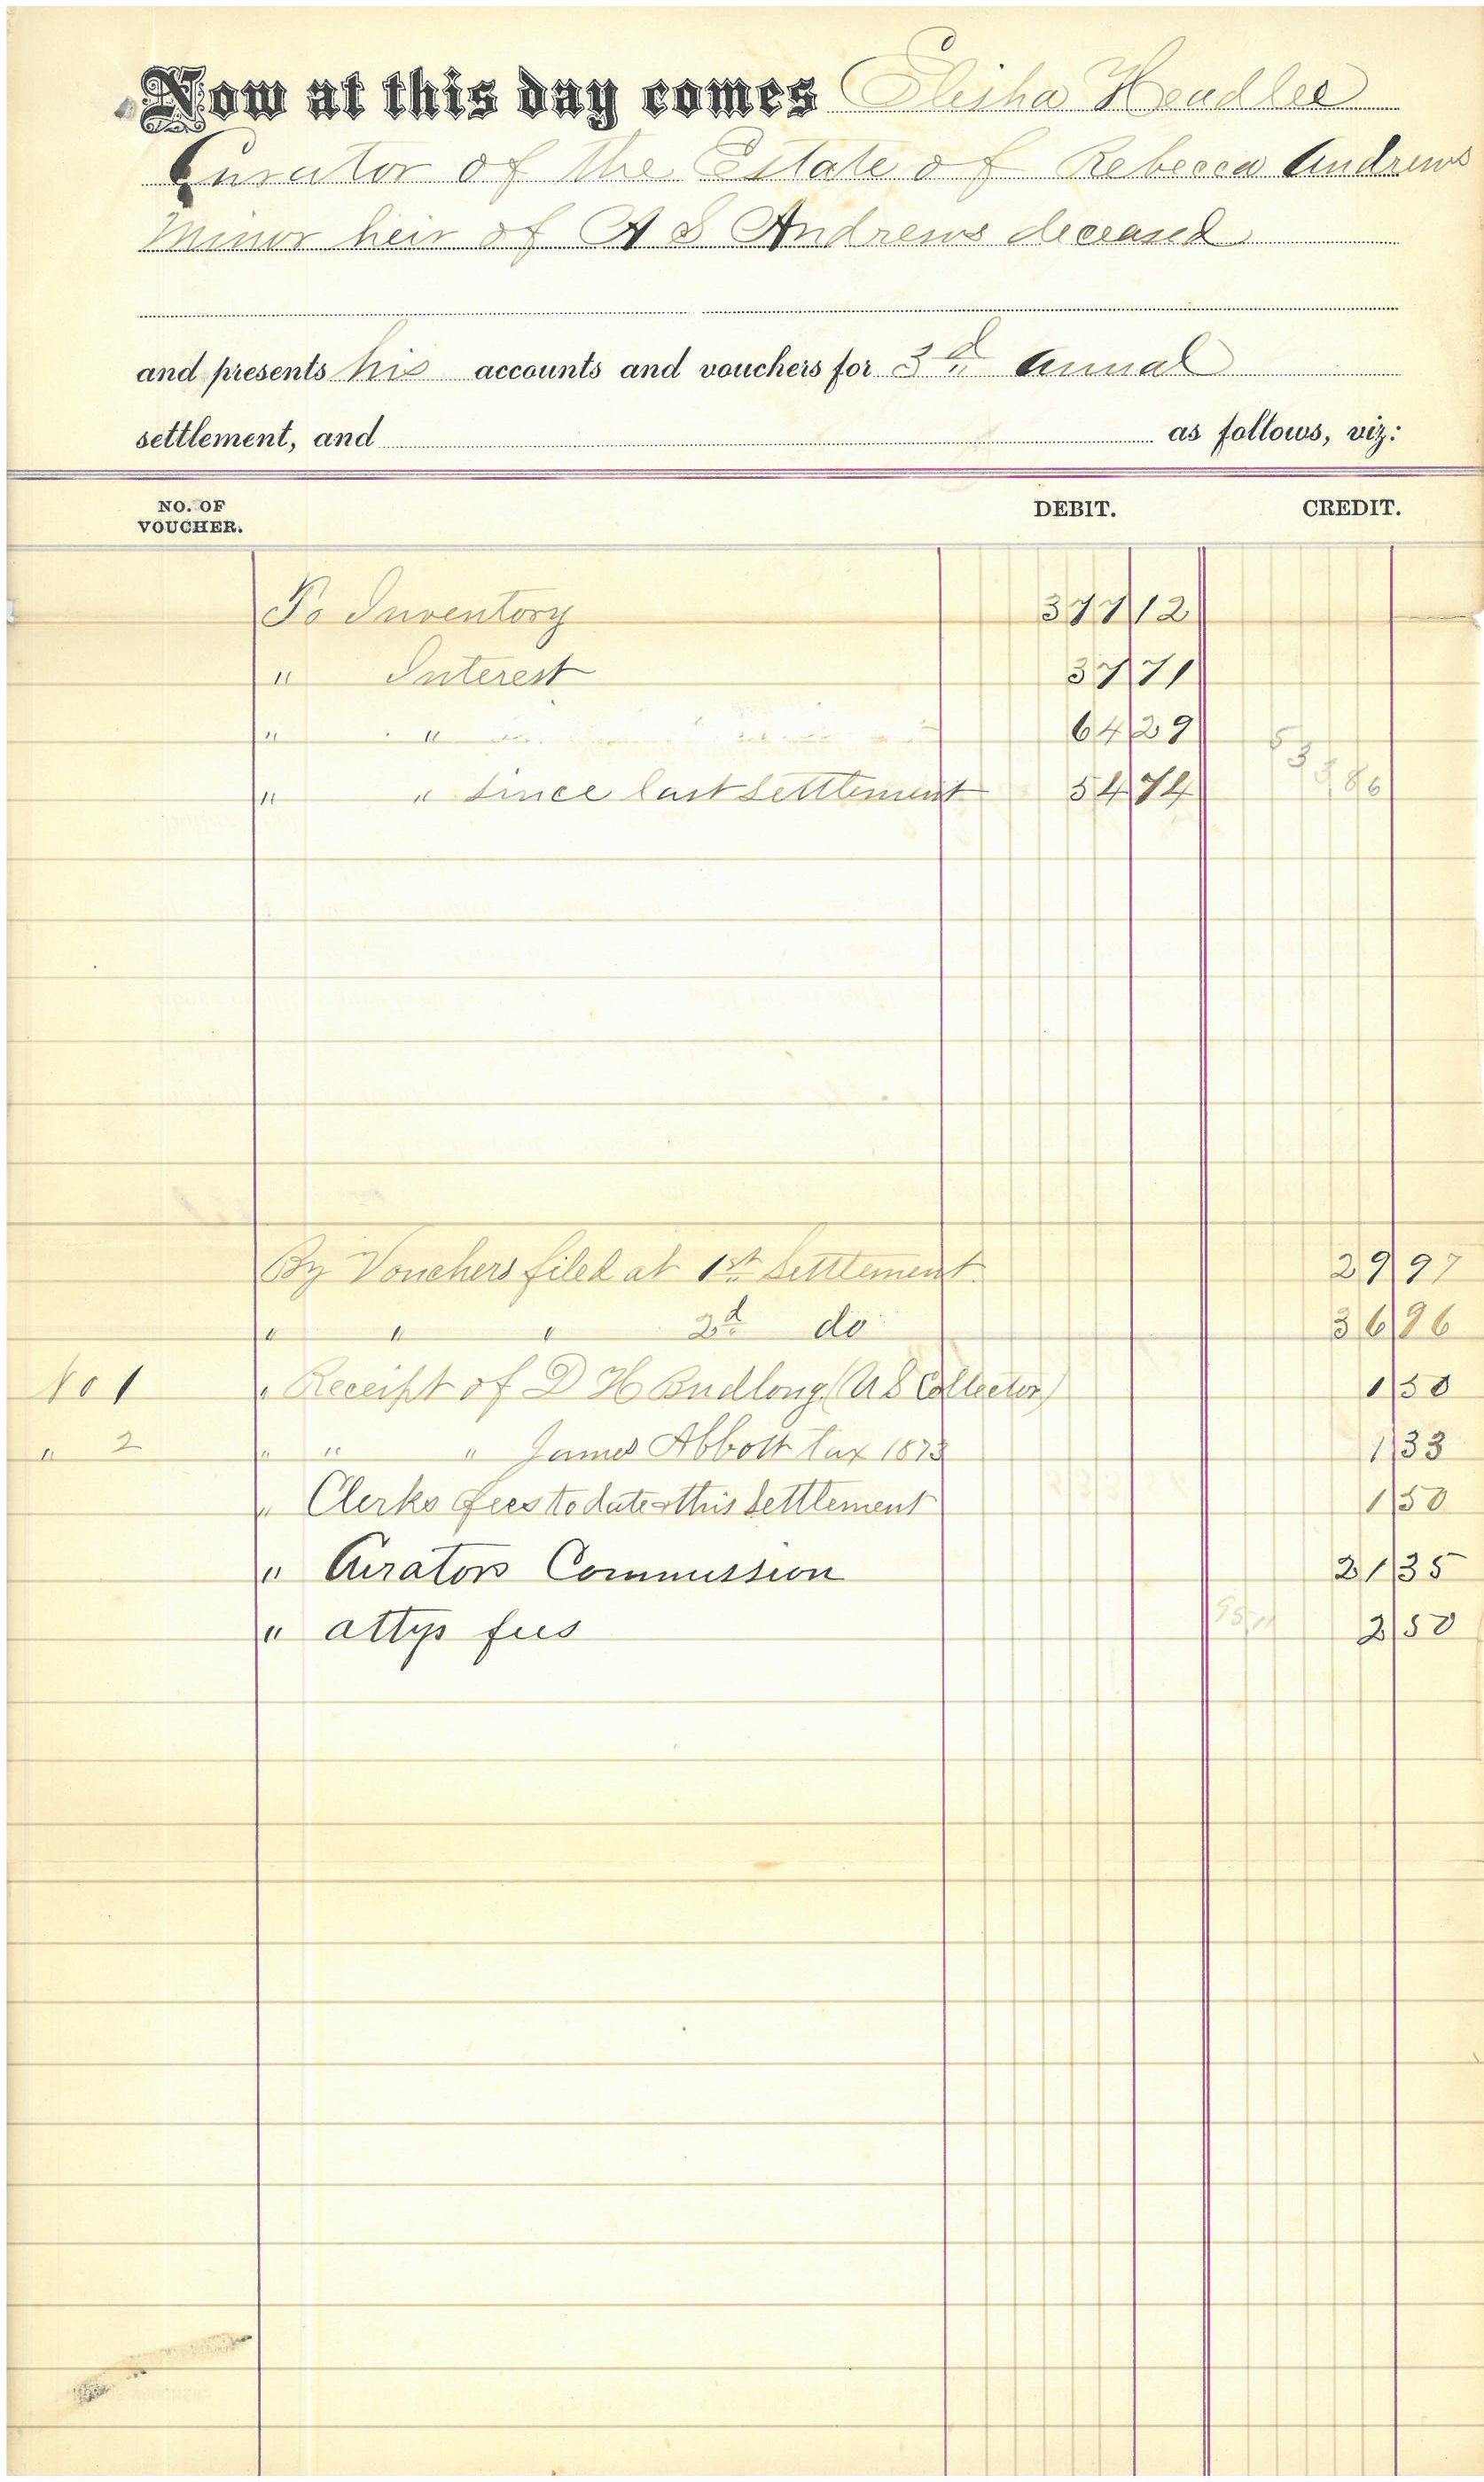 Now at this day comes Elisha Headlee
Curator of the Estate of Rebecca Andrews
Minor heir of A S Andrews deceased
and presents his accounts and vouchers for 3d annual
settlement, and as follows, viz:
NO. OF VOUCHER. DEBIT. CREDIT.
To Inventory 377 12
" Interest 37 71
" " 64 29
" " since last settlement 54 74 533.86
By Vouchers filed at 1st Settlement 29 97
" " " 2d do 36 96
No 1 " Receipt of D H Budlong (U S Collector) 1 50
" 2 " " " James Abbott tax 1873 1 33
" Clerks fees to date & this Settlement 1 50
" Curators Commission 21 35
" attys fees 95.11 2 50